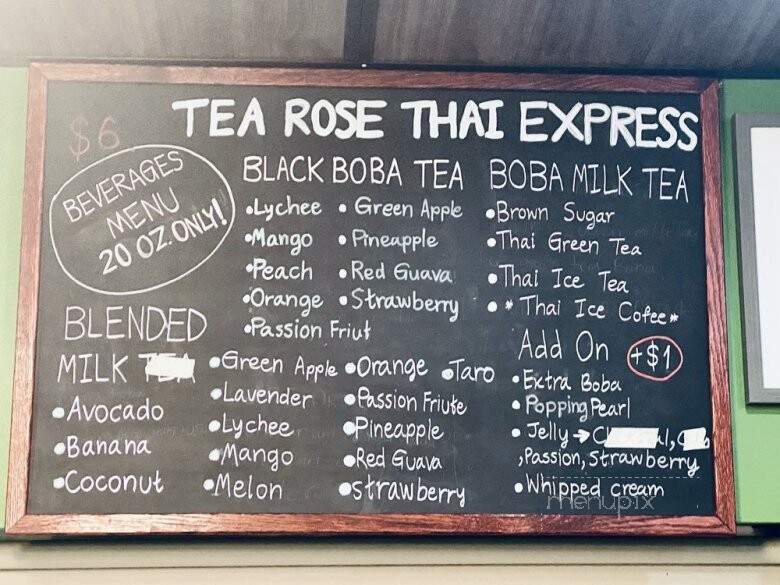 $6
TEA ROSE THAI EXPRESS
BEVERAGES
MENU
20 OZ. ONLY!
BLACK BOBA TEA
•Lychee • Green Apple
•Mango • Pineapple
•Peach • Red Guava
•Orange • Strawberry
•Passion Friut
BOBA MILK TEA
•Brown Sugar
•Thai Green Tea
•Thai Ice Tea
• * Thai Ice Cofee *
BLENDED
MILK
•Avocado
•Banana
•Coconut
•Green Apple •Orange •Taro
•Lavender •Passion Friute
•Lychee •Pineapple
•Mango •Red Guava
•Melon •strawberry
Add On +$1
•Extra Boba
•Popping Pearl
•Jelly →
,Passion, Strawberry
•Whipped cream
menupix